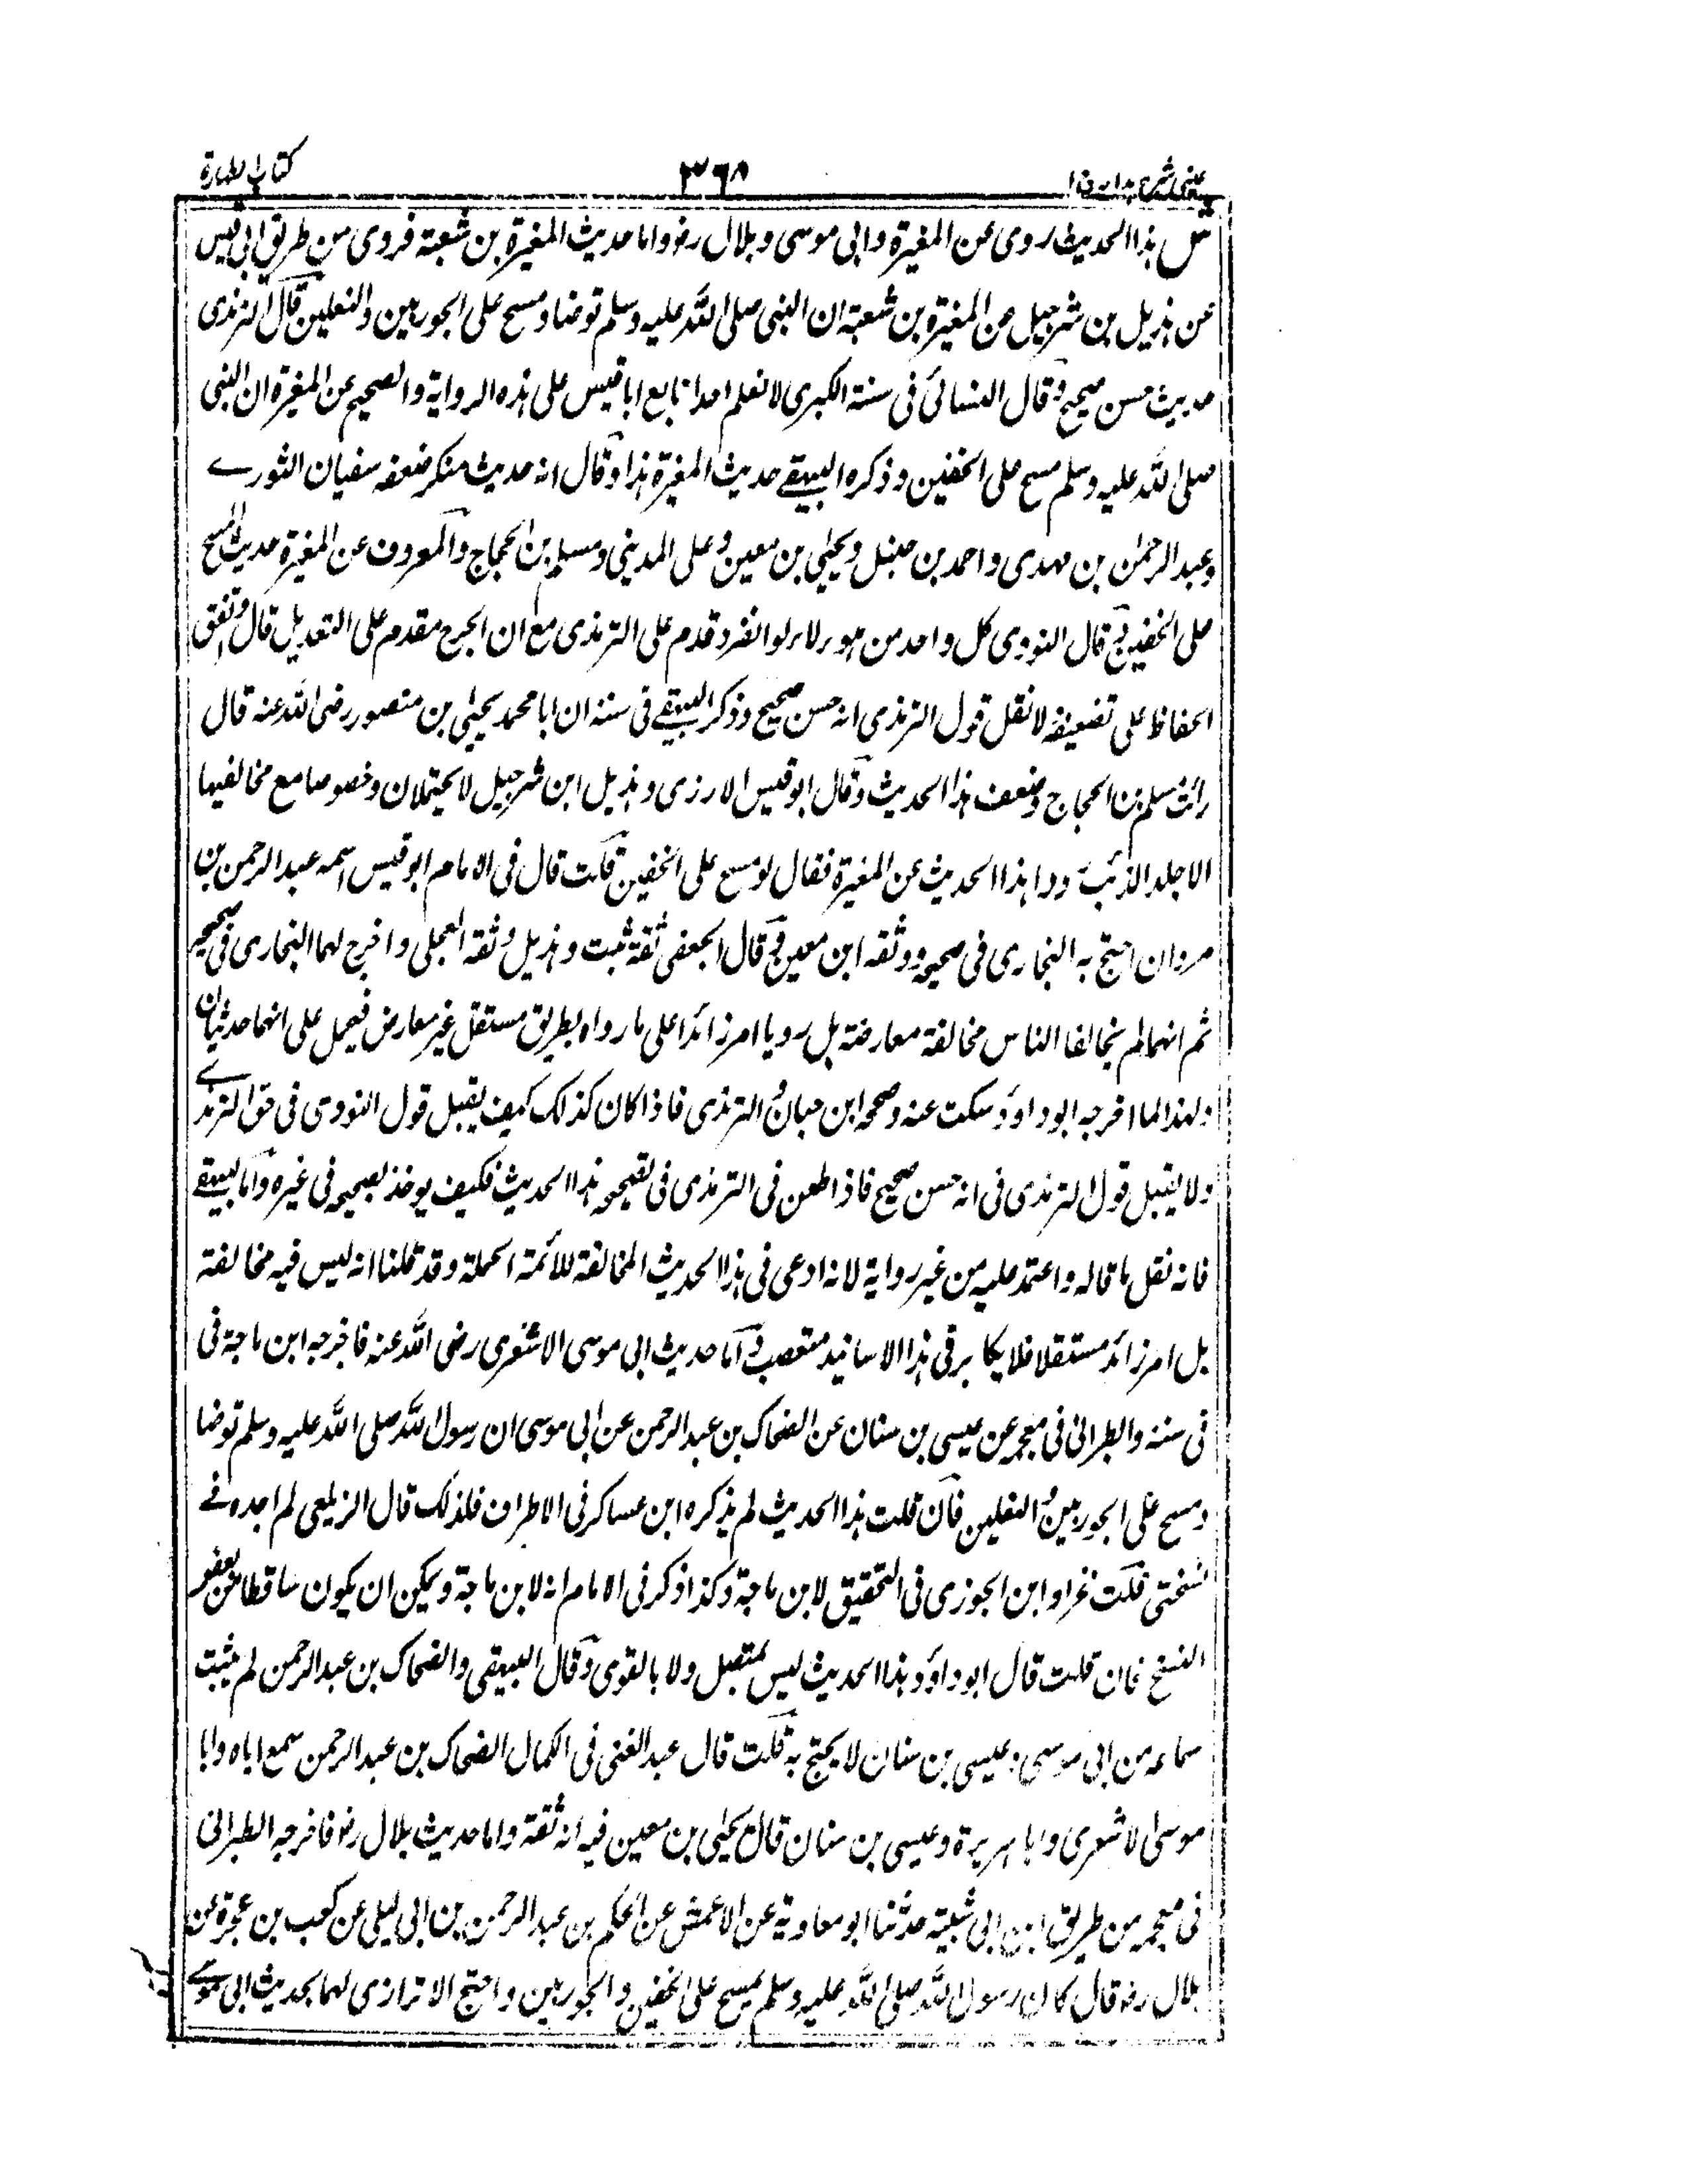 كتاب الطهارة
٣٦٨
عینی شرح ہدایہ ج ا
ش ہذا الحدیث روی عن المغیرة وابی موسی وبلال رض واما حدیث المغیرة بن شعبة فروی من طریق ابی قیس
عن ہذیل بن شرجیل عن المغیرة بن شعبة ان النبی صلی اللہ علیہ وسلم توضا ومسح علی الجوربین والنعلین قال الترمذی
حدیث حسن صحیح وقال النسائی فی سننہ الکبری لا نعلم احدا تابع ابا قیس علی ہذہ الروایة والصحیح عن المغیرة ان النبی
صلی اللہ علیہ وسلم مسح علی الخفین وذکرہ البیہقے حدیث المغیرة ہذا وقال انہ حدیث منکر ضعفہ سفیان الثورے
وعبد الرحمٰن بن مہدی واحمد بن حنبل ویحیٰی بن معین وعلی المدینی ومسلم بن الحجاج والمعروف عن المغیرة حدیث المسح
علی الخفین وقال النووی کل واحد من ہولاء لو انفرد قدم علی الترمذی مع ان الجرح مقدم علی التعدیل قال واتفق
الحفاظ علی تضعیفہ لا نقل قول الترمذی انہ حسن صحیح وذکر البیہقے فی سننہ ان ابا محمد یحیٰی بن منصور رضی اللہ عنہ قال
رائت مسلم بن الحجاج وضعف ہذا الحدیث وقال ابو قیس الارزی وہذیل ابن شرجیل لا یحتملان وخصوصا مع مخالفیہا
الاجلد الذئب وردا ہذا الحدیث عن المغیرة فقال لو مسح علی الخفین قلت قال فی الامام ابو قیس اسمہ عبد الرحمن بن
مروان احتج بہ البخاری فی صحیحہ ووثقہ ابن معین وقال الجعفی ثقة ثبت وہذیل وثقہ العجلی واخرج لہما البخاری فی صحیحہ
ثم انہما لم یخالفا الناس مخالفة معارضة بل رویا امر زائدا علی ما رواہ بطریق مستقل غیر معارض فیعمل علی انہما حدیثان
ولہذا لما اخرجہ ابو داود سکت عنہ وصححہ ابن حبان والترمذی فاذا کان کذلک کیف یقبل قول النووی فی حق الترمذے
ولا یقبل قول الترمذی فی انہ حسن صحیح فاذا طعن فی الترمذی فی تصحیحہ ہذا الحدیث فکیف یوخذ بصحیحہ فی غیرہ واما البیہقے
فانہ نقل ما قالہ واعتمد علیہ من غیر روایة لانہ ادعی فی ہذا الحدیث المخالفة للائمة الحملة وقد قلنا انہ لیس فیہ مخالفة
بل امر زائد مستقلا فلا یکابر فی ہذا الاسانید متعصب واما حدیث ابی موسی الاشعری رضی اللہ عنہ فاخرجہ ابن ماجة فی
فی سننہ والطبرانی فی معجمہ عن عیسی بن سنان عن الضحاک بن عبد الرحمن عن ابی موسی ان رسول اللہ صلی اللہ علیہ وسلم توضا
ومسح علی الجوربین والنعلین فان قلت ہذا الحدیث لم یذکرہ ابن عساکر فی الاطراف فلذلک قال الزیلعی لم اجدہ فے
نسختی قلت عزاہ ابن الجوزی فی التحقیق لابن ماجة وکذا ذکر فی الامام انہ لابن ماجة ویمکن ان یکون ساقطا عن بعض
النسخ فان قلت قال ابو داود ہذا الحدیث لیس بمتصل ولا بالقوی وقال البیہقی والضحاک بن عبد الرحمن لم یثبت
سماعہ من ابی موسی وعیسی بن سنان لا یحتج بہ قلت قال عبد الغنی فی الکمال الضحاک بن عبد الرحمن سمع اباہ وابا
موسی الاشعری وابا ہریرة وعیسی بن سنان قال یحیٰی بن معین فیہ انہ ثقة واما حدیث بلال رض فاخرجہ الطبرانی
فی معجمہ من طریق ابن ابی شیبة حدثنا ابو معاویة عن الاعمش عن الحکم بن عبد الرحمن بن ابی لیلی عن کعب بن عجرة عن
بلال رض قال کان رسول اللہ صلی اللہ علیہ وسلم یمسح علی الخفین والجوربین واحتج الاترازی لہما بحدیث ابی موسے